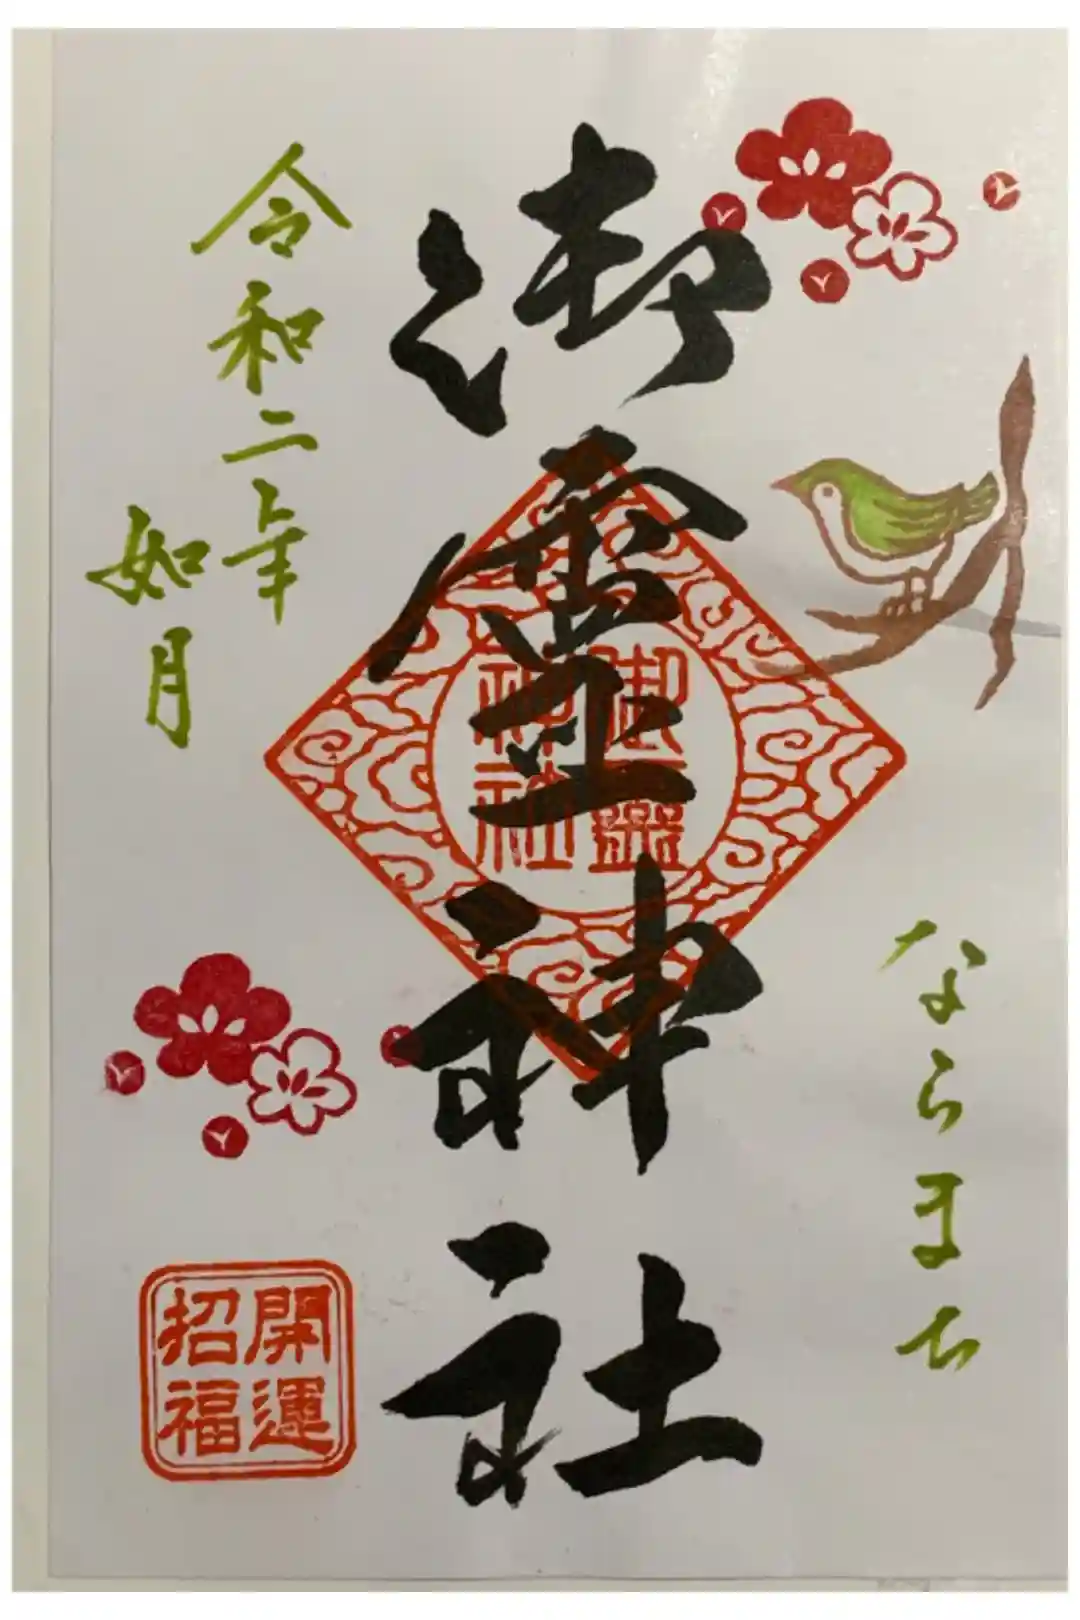 ならまち
御霊神社
御霊
神社
令和二年
如月
開運
招福